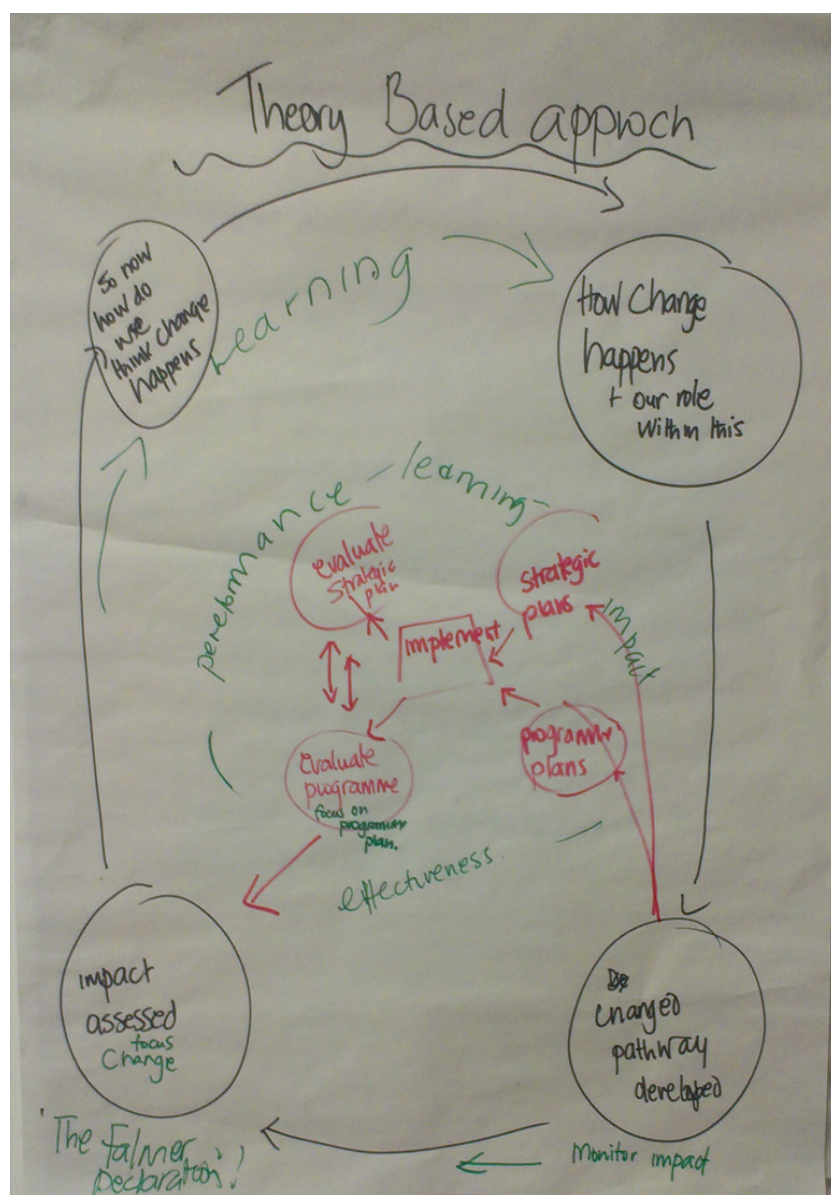 Theory Based approch
So now
how do
we
think change
happens
Learning
How Change
happens
+ our role
within this
pereformance - learning -
evaluate
Strategic
plan
Strategic
plans
implement
impact
programme
plans
evaluate
programme
focus on
programme
plan.
effectiveness
impact
assessed
focus
Change
Changed
pathway
developed
Monitor impact
'The Falmer
Declaration'!